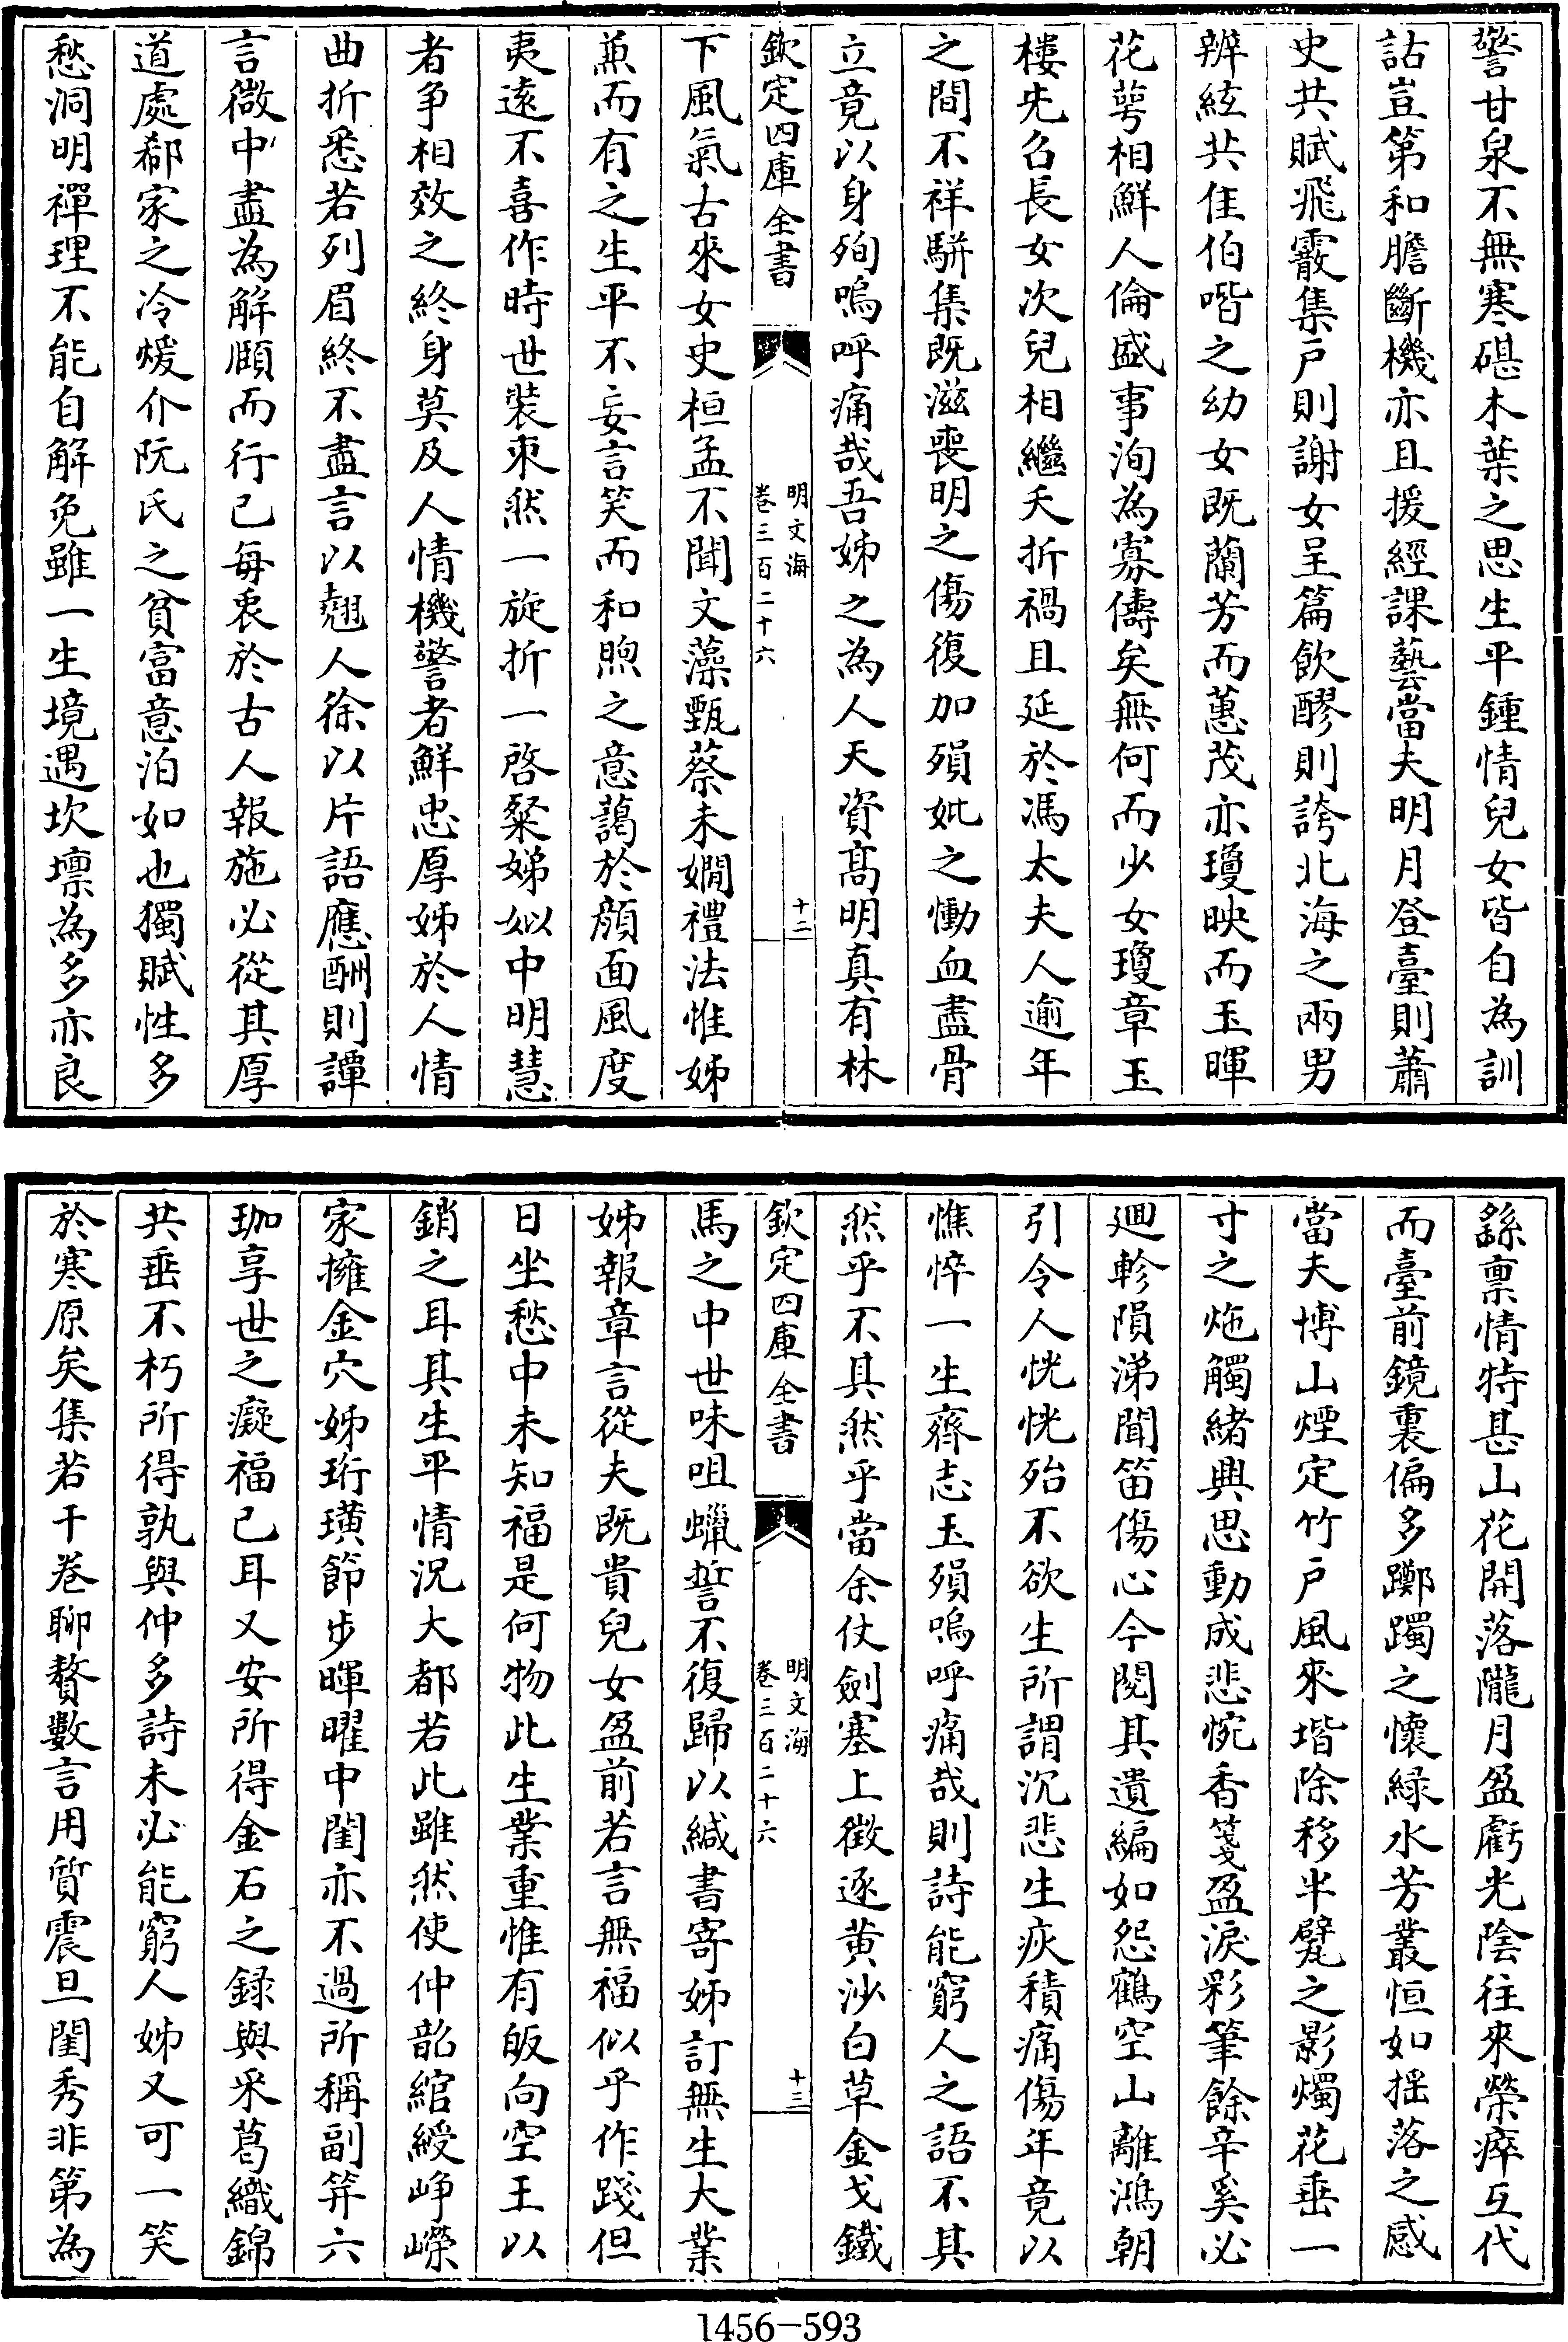 警甘泉不無寒碪木葉之思生平鍾情兒女皆自為訓
詁豈第和膽斷機亦且援經課藝當夫明月登臺則蕭
史共賦飛霰集戶則謝女呈篇飲醪則誇北海之兩男
辨絃共隹伯喈之幼女既蘭芳而蕙茂亦瓊映而玉暉
花萼相鮮人倫盛事洵為寡儔矣無何而少女瓊章玉
樓先召長女次兒相繼夭折禍且延於馮太夫人逾年
之間不祥駢集既滋喪明之傷復加殞妣之慟血盡骨
立竟以身殉嗚呼痛哉吾姊之為人天資高明真有林
欽定四庫全書
明文海
卷三百二十六
十二
下風氣古來女史桓孟不聞文藻甄蔡未嫺禮法惟姊
兼而有之生平不妄言笑而和煦之意藹於顏面風度
夷遠不喜作時世裝束然一旋折一啓粲娣姒中明慧
者爭相效之終身莫及人情機警者鮮忠厚姊於人情
曲折悉若列眉終不盡言以翹人徐以片語應酬則譚
言微中盡為解頤而行已每衷於古人報施必從其厚
道處郗家之冷煖介阮氏之貧富意泊如也獨賦性多
愁洞明禪理不能自解免雖一生境遇坎壈為多亦良
繇禀情特甚山花開落隴月盈虧光陰往來榮瘁互代
而臺前鏡裏偏多躑躅之懷緑水芳叢恒如揺落之感
當夫博山煙定竹戶風來堦除移半甃之影燭花垂一
寸之灺觸緒興思動成悲惋香箋盈淚彩筆餘辛奚必
廻軫隕涕聞笛傷心今閱其遺編如怨鶴空山離鴻朝
引令人恍恍殆不欲生所謂沉悲生疢積痛傷年竟以
憔悴一生齎志玉殞嗚呼痛哉則詩能窮人之語不其
然乎不其然乎當余仗劍塞上徴逐黄沙白草金戈鐵
欽定四庫全書
明文海
卷三百二十六
十三
馬之中世味咀蠟誓不復歸以緘書寄姊訂無生大業
姊報章言從夫既貴兒女盈前若言無福似乎作踐但
日坐愁中未知福是何物此生業重惟有皈向空王以
銷之耳其生平情況大都若此雖然使仲韶綰綬崢嶸
家擁金穴姊珩璜節步暉曜中閨亦不過所稱副笄六
珈享世之癡福已耳又安所得金石之録與采葛織錦
共垂不朽所得孰與仲多詩未必能窮人姊又可一笑
於寒原矣集若干卷聊贅數言用質震旦閨秀非第為
1456-593